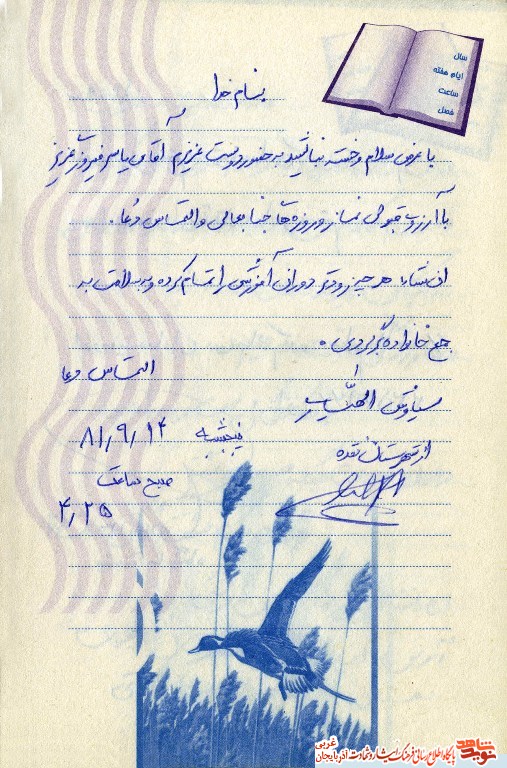 سال
ایام هفته
ساعت
فصل
بسنام خدا
با عرض سلام و خسته نباشید به حضور دوست عزیزم آقای یاسر فیروزی عزیز
با آرزوی قبولی نماز و روزه های جنابعالی و التماس دعا.
انشاءا... هر چه زودتر دوران آموزشی را تمام کرده و به سلامت به
جمع خانواده برگردی.
التماس دعا
سیاوش
از شهرستان نقده
پنجشنبه ۸۱٫۹٫۱۴
صبح ساعت
۴٫۲۵
نوید شاهد
پایگاه اطلاع رسانی فرهنگ ایثار و شهادت آذربایجان غربی